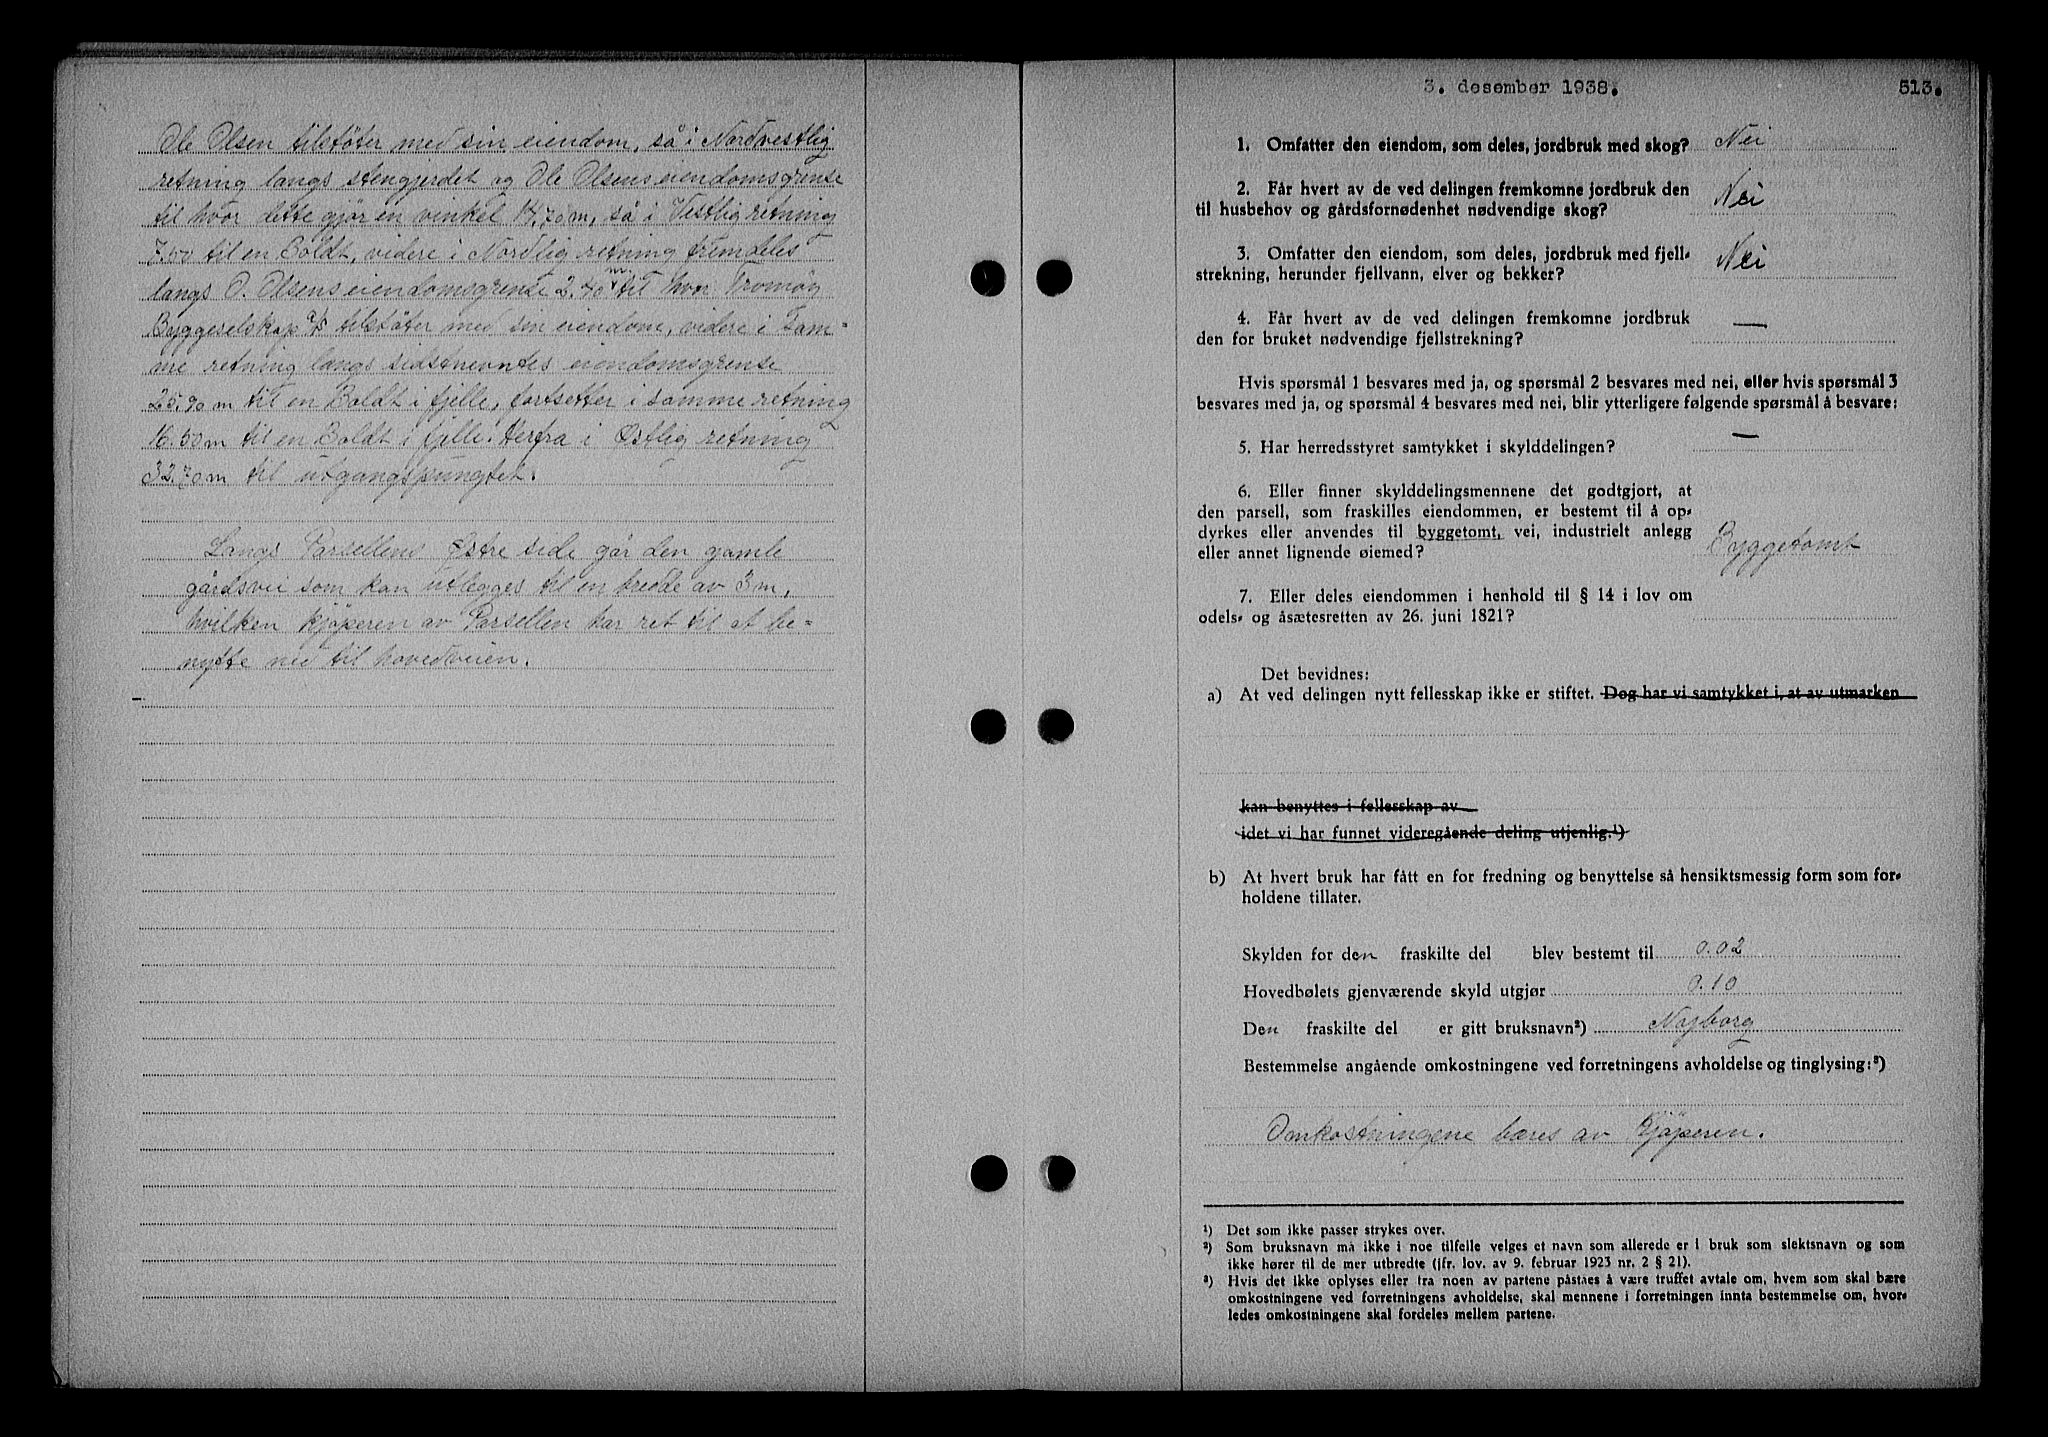 Ole Olsen tilstöter med sin eiendom, så i Nordvestlig
retning langs stengjerdet og Ole Olsens eiendomsgrense
til hvor dette gjör en vinkel 14,70 m, så i Vestlig retning
7.50 til en Boldt, videre i Nordlig retning fremdeles
langs O. Olsens eiendomsgrense 2.40 m til hvor Tromöy
Byggeselskap a/s tilstöter med sin eiendom, videre i Sam-
me retning langs sidstnevntes eiendomsgrense
25.90 m til en Boldt i fjelle, fortsetter i samme retning
16.50 m til en Boldt i fjelle. Herfra i Østlig retning
32.70 m til utgangspungtet.
Langs Parsellens Østre side går den gamle
gårdsvei som kan utlegges til en bredde av 3 m,
hvilken kjöperen av Parsellen har ret til at be-
nytte ned til hovedveien.
3. desember 1938. 513.
1. Omfatter den eiendom, som deles, jordbruk med skog? Nei
2. Får hvert av de ved delingen fremkomne jordbruk den
til husbehov og gårdsfornødenhet nødvendige skog? Nei
3. Omfatter den eiendom, som deles, jordbruk med fjell-
strekning, herunder fjellvann, elver og bekker? Nei
4. Får hvert av de ved delingen fremkomne jordbruk —
den for bruket nødvendige fjellstrekning?
Hvis spørsmål 1 besvares med ja, og spørsmål 2 besvares med nei, eller hvis spørsmål 3
besvares med ja, og spørsmål 4 besvares med nei, blir ytterligere følgende spørsmål å besvare:
5. Har herredsstyret samtykket i skylddelingen? —
6. Eller finner skylddelingsmennene det godtgjort, at
den parsell, som fraskilles eiendommen, er bestemt til å op-
dyrkes eller anvendes til byggetomt, vei, industrielt anlegg
eller annet lignende øiemed? Byggetomt
7. Eller deles eiendommen i henhold til § 14 i lov om
odels- og åsætesretten av 26. juni 1821?
Det bevidnes:
a) At ved delingen nytt fellesskap ikke er stiftet. Dog har vi samtykket i, at av utmarken
kan benyttes i fellesskap av
idet vi har funnet videregående deling utjenlig.¹)
b) At hvert bruk har fått en for fredning og benyttelse så hensiktsmessig form som for-
holdene tillater.
Skylden for den fraskilte del blev bestemt til 0.02
Hovedbølets gjenværende skyld utgjør 0.10
Den fraskilte del er gitt bruksnavn²) Nyborg
Bestemmelse angående omkostningene ved forretningens avholdelse og tinglysing:³)
Omkostningene bæres av Kjöperen.
¹) Det som ikke passer strykes over.
²) Som bruksnavn må ikke i noe tilfelle velges et navn som allerede er i bruk som slektsnavn og som
ikke hører til de mer utbredte (jfr. lov. av 9. februar 1923 nr. 2 § 21).
³) Hvis det ikke oplyses eller fra noen av partene påstaes å være truffet avtale om, hvem som skal bære
omkostningene ved forretningens avholdelse, skal mennene i forretningen innta bestemmelse om, hvor-
ledes omkostningene skal fordeles mellem partene.